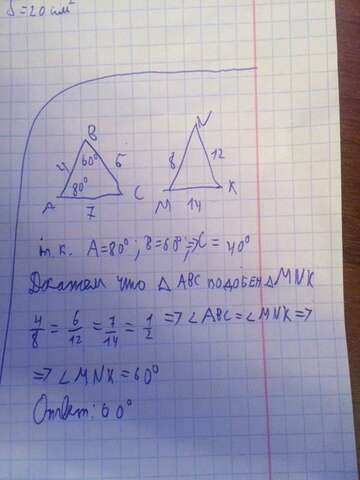 S=20 см²
B
60°
4
6
80°
A
7
C
N
8
12
M
14
K
т.к. A=80°; B=60°; ⇒ C = 40°
Докажем что △ ABC подобен △ MNK
4/8 = 6/12 = 7/14 = 1/2 ⇒ ∠ ABC = ∠ MNK ⇒
⇒ ∠ MNK = 60°
Ответ: 60°